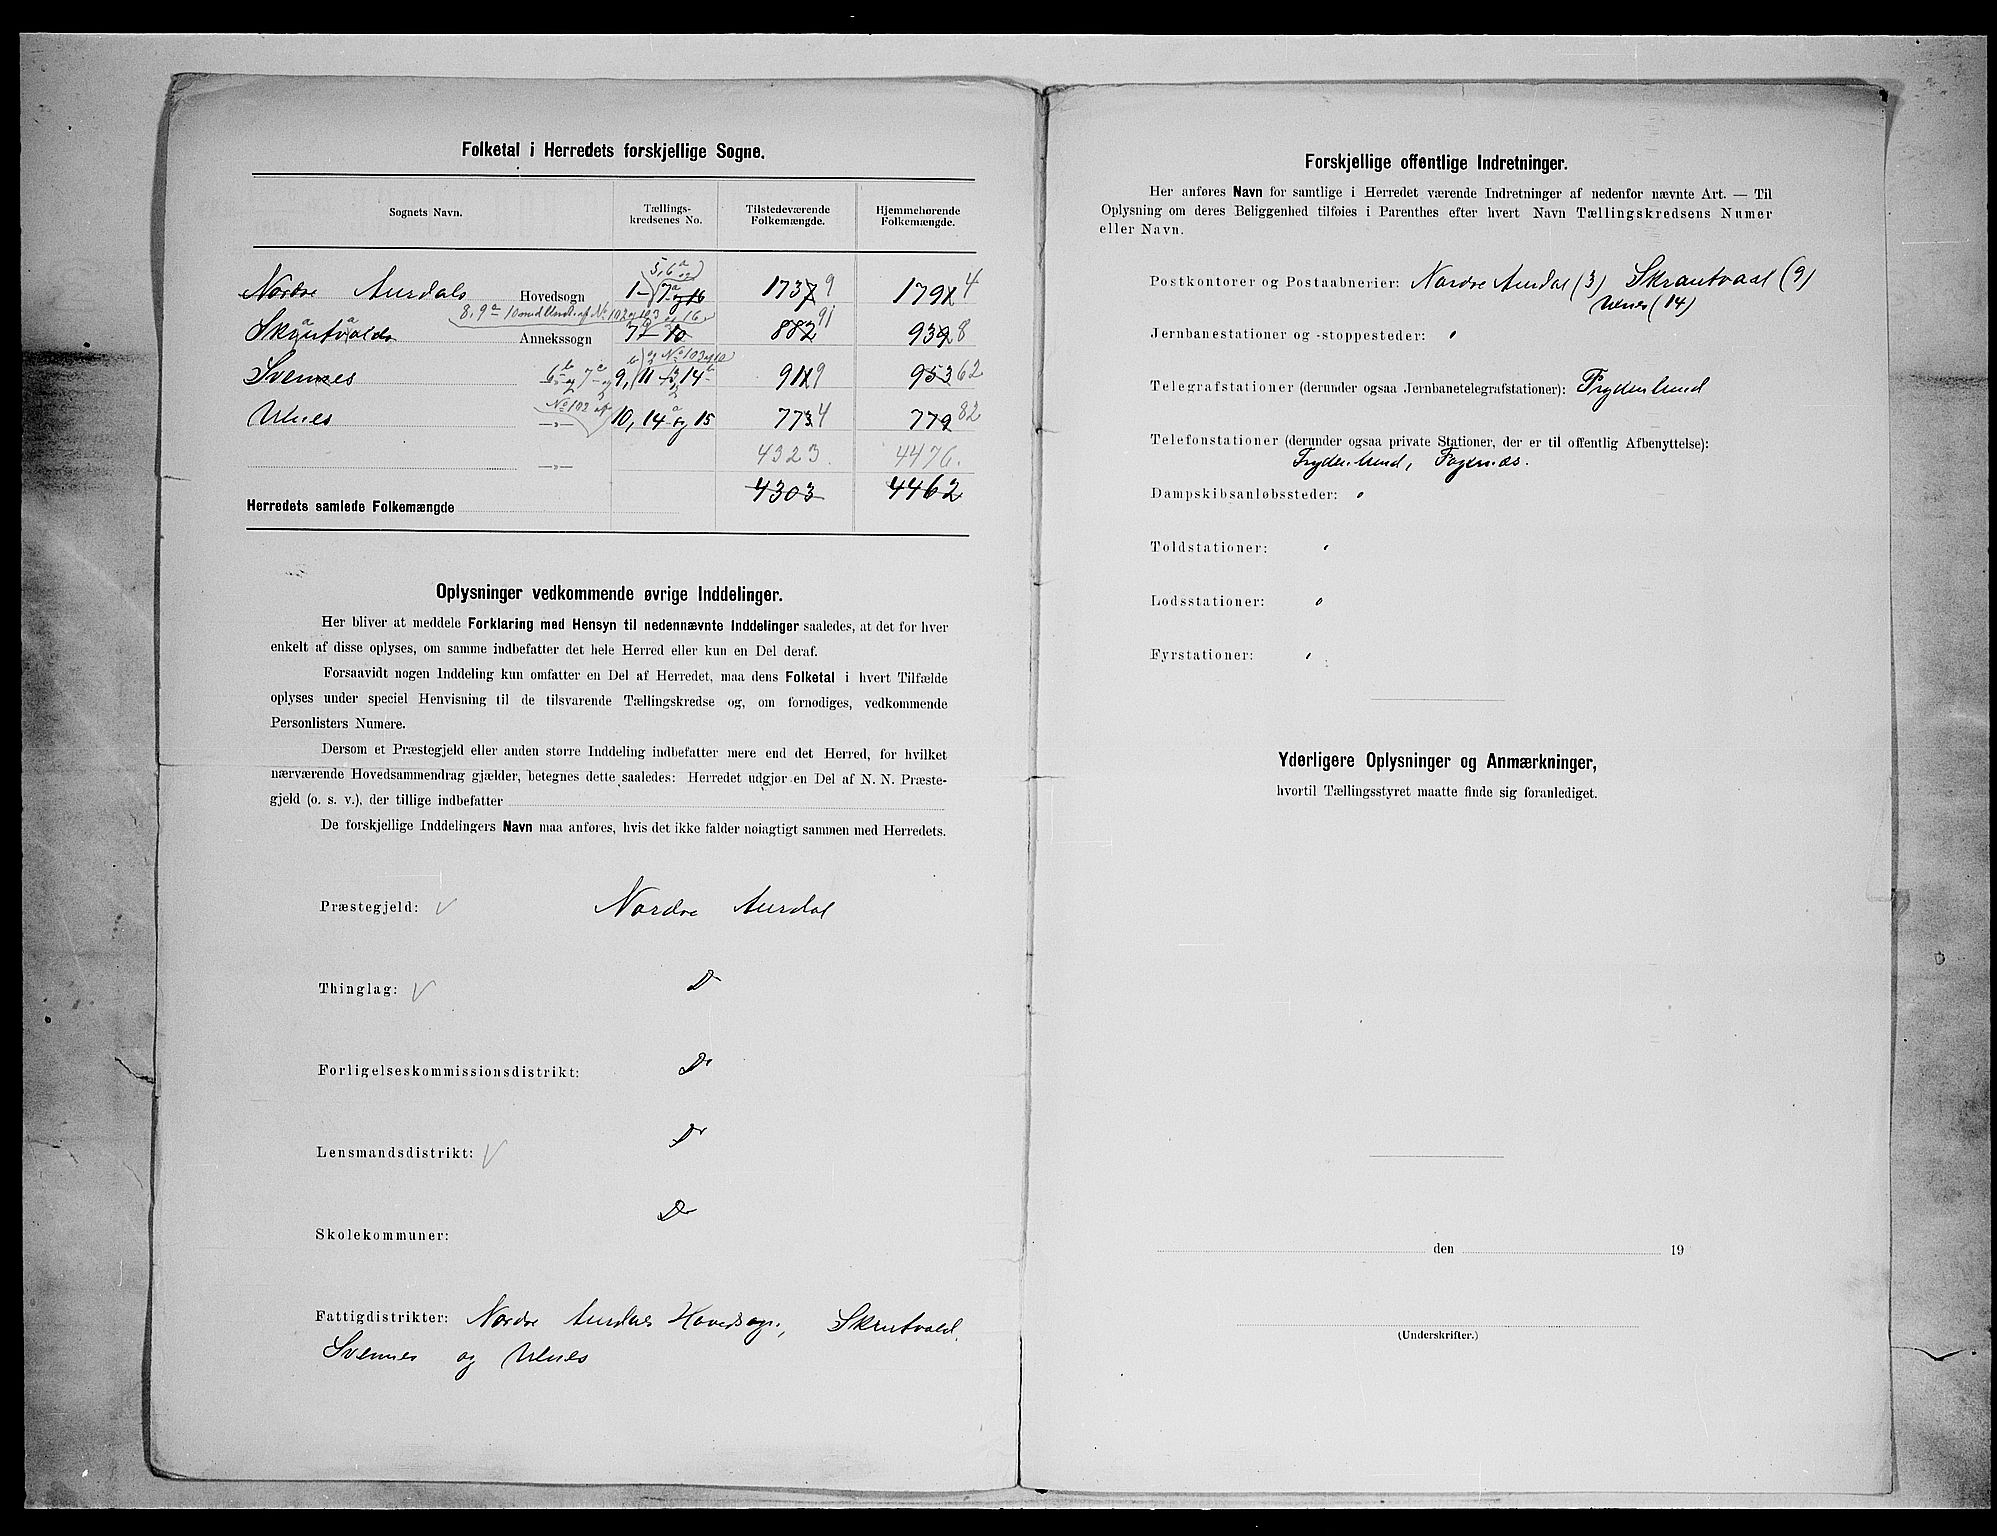 Folketal i Herredets forskjellige Sogne.
Sognets Navn.
Tællings-
kredsenes No.
Tilstedeværende
Folkemængde.
Hjemmehørende
Folkemængde.
5, 6a og
Nordre Aurdals Hovedsogn 1 - 7a og 16 1737 9 1791 4
8, 9a 10 med Undt. af No 102 og 103 og 16
Skrautvåls Annekssogn 7 - 10 882 91 932 8
b og No 103 af 10
Svennes 6b og 7c og 9, 11 - 13 og 14b 911 9 953 62
No 102 af
Ulnes —„— 10, 14a og 15 773 4 779 82
—„— 4323. 4476.
4303 4462
Herredets samlede Folkemængde
Oplysninger vedkommende øvrige Inddelinger.
Her bliver at meddele Forklaring med Hensyn til nedennævnte Inddelinger saaledes, at det for hver
enkelt af disse oplyses, om samme indbefatter det hele Herred eller kun en Del deraf.
Forsaavidt nogen Inddeling kun omfatter en Del af Herredet, maa dens Folketal i hvert Tilfælde
oplyses under speciel Henvisning til de tilsvarende Tællingskredse og, om fornødiges, vedkommende
Personlisters Numere.
Dersom et Præstegjeld eller anden større Inddeling indbefatter mere end det Herred, for hvilket
nærværende Hovedsammendrag gjælder, betegnes dette saaledes: Herredet udgjør en Del af N. N. Præste-
gjeld (o. s. v.), der tillige indbefatter
De forskjellige Inddelingers Navn maa anføres, hvis det ikke falder nøiagtigt sammen med Herredets.
Præstegjeld: V Nordre Aurdal
Thinglag: V Do
Forligelseskommissionsdistrikt: Do
Lensmandsdistrikt: V Do
Skolekommuner: Do
Fattigdistrikter: Nordre Aurdals Hovedsogn, Skrutvold,
Svennes og Ulnes
Forskjellige offentlige Indretninger.
Her anføres Navn for samtlige i Herredet værende Indretninger af nedenfor nævnte Art. — Til
Oplysning om deres Beliggenhed tilføies i Parenthes efter hvert Navn Tællingskredsens Numer
eller Navn.
Postkontorer og Postaabnerier: Nordre Aurdal (3) Skrautvaal (9)
Ulnes (14)
Jernbanestationer og -stoppesteder: "
Telegrafstationer (derunder ogsaa Jernbanetelegrafstationer): Frydenlund
Telefonstationer (derunder ogsaa private Stationer, der er til offentlig Afbenyttelse):
Frydenlund, Fagernæs.
Dampskibsanløbssteder: "
Toldstationer: "
Lodsstationer: "
Fyrstationer: "
Yderligere Oplysninger og Anmærkninger,
hvortil Tællingsstyret maatte finde sig foranlediget.
den 19
(Underskrifter.)